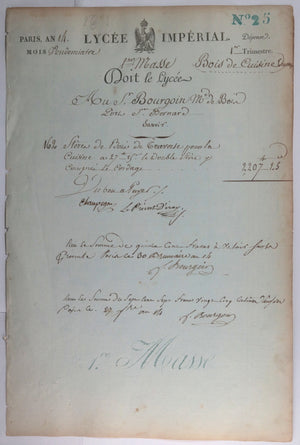 Nº 25
PARIS, AN 14. LYCÉE IMPÉRIAL. Dépense.
MOIS Vendemiaire 1er Trimestre.
1ere Masse Bois de Cuisine
Doit le Lycée
Au Sr. Bourgoin Md. de Bois
Port St. Bernard
Savoir
162 Stère de Bois de pour la
Cuisine a 27 le Double Stère y
Compris le Cordage 2207 25
Vu bon a Payer
Champagne
Reçu la Somme de quinze Cent francs a Valoir sur le
Paris le 30 Brumaire an 14
Bourgoin
Reçu la Somme de Sept Cent Sept francs Vingt Cinq Centimes
Paris le an 14
Bourgoin
1re Masse